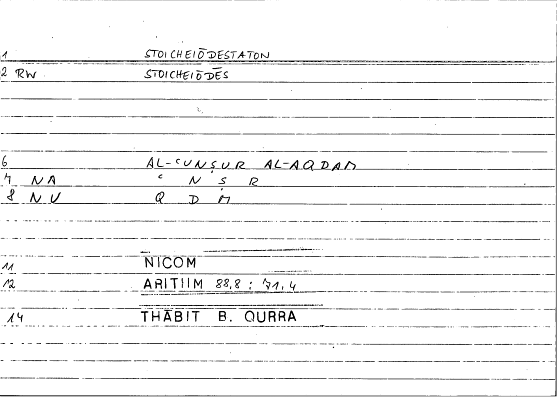 1 STOICHEIŌDESTATON
2 RW STOICHEIŌDĒS
6 AL-ʿUNṢUR AL-AQDAM
7 NA ʿ N Ṣ R
8 NU Q D M
11 NICOM
12 ARITIIM 88,8 : 71,4
14 THĀBIT B. QURRA